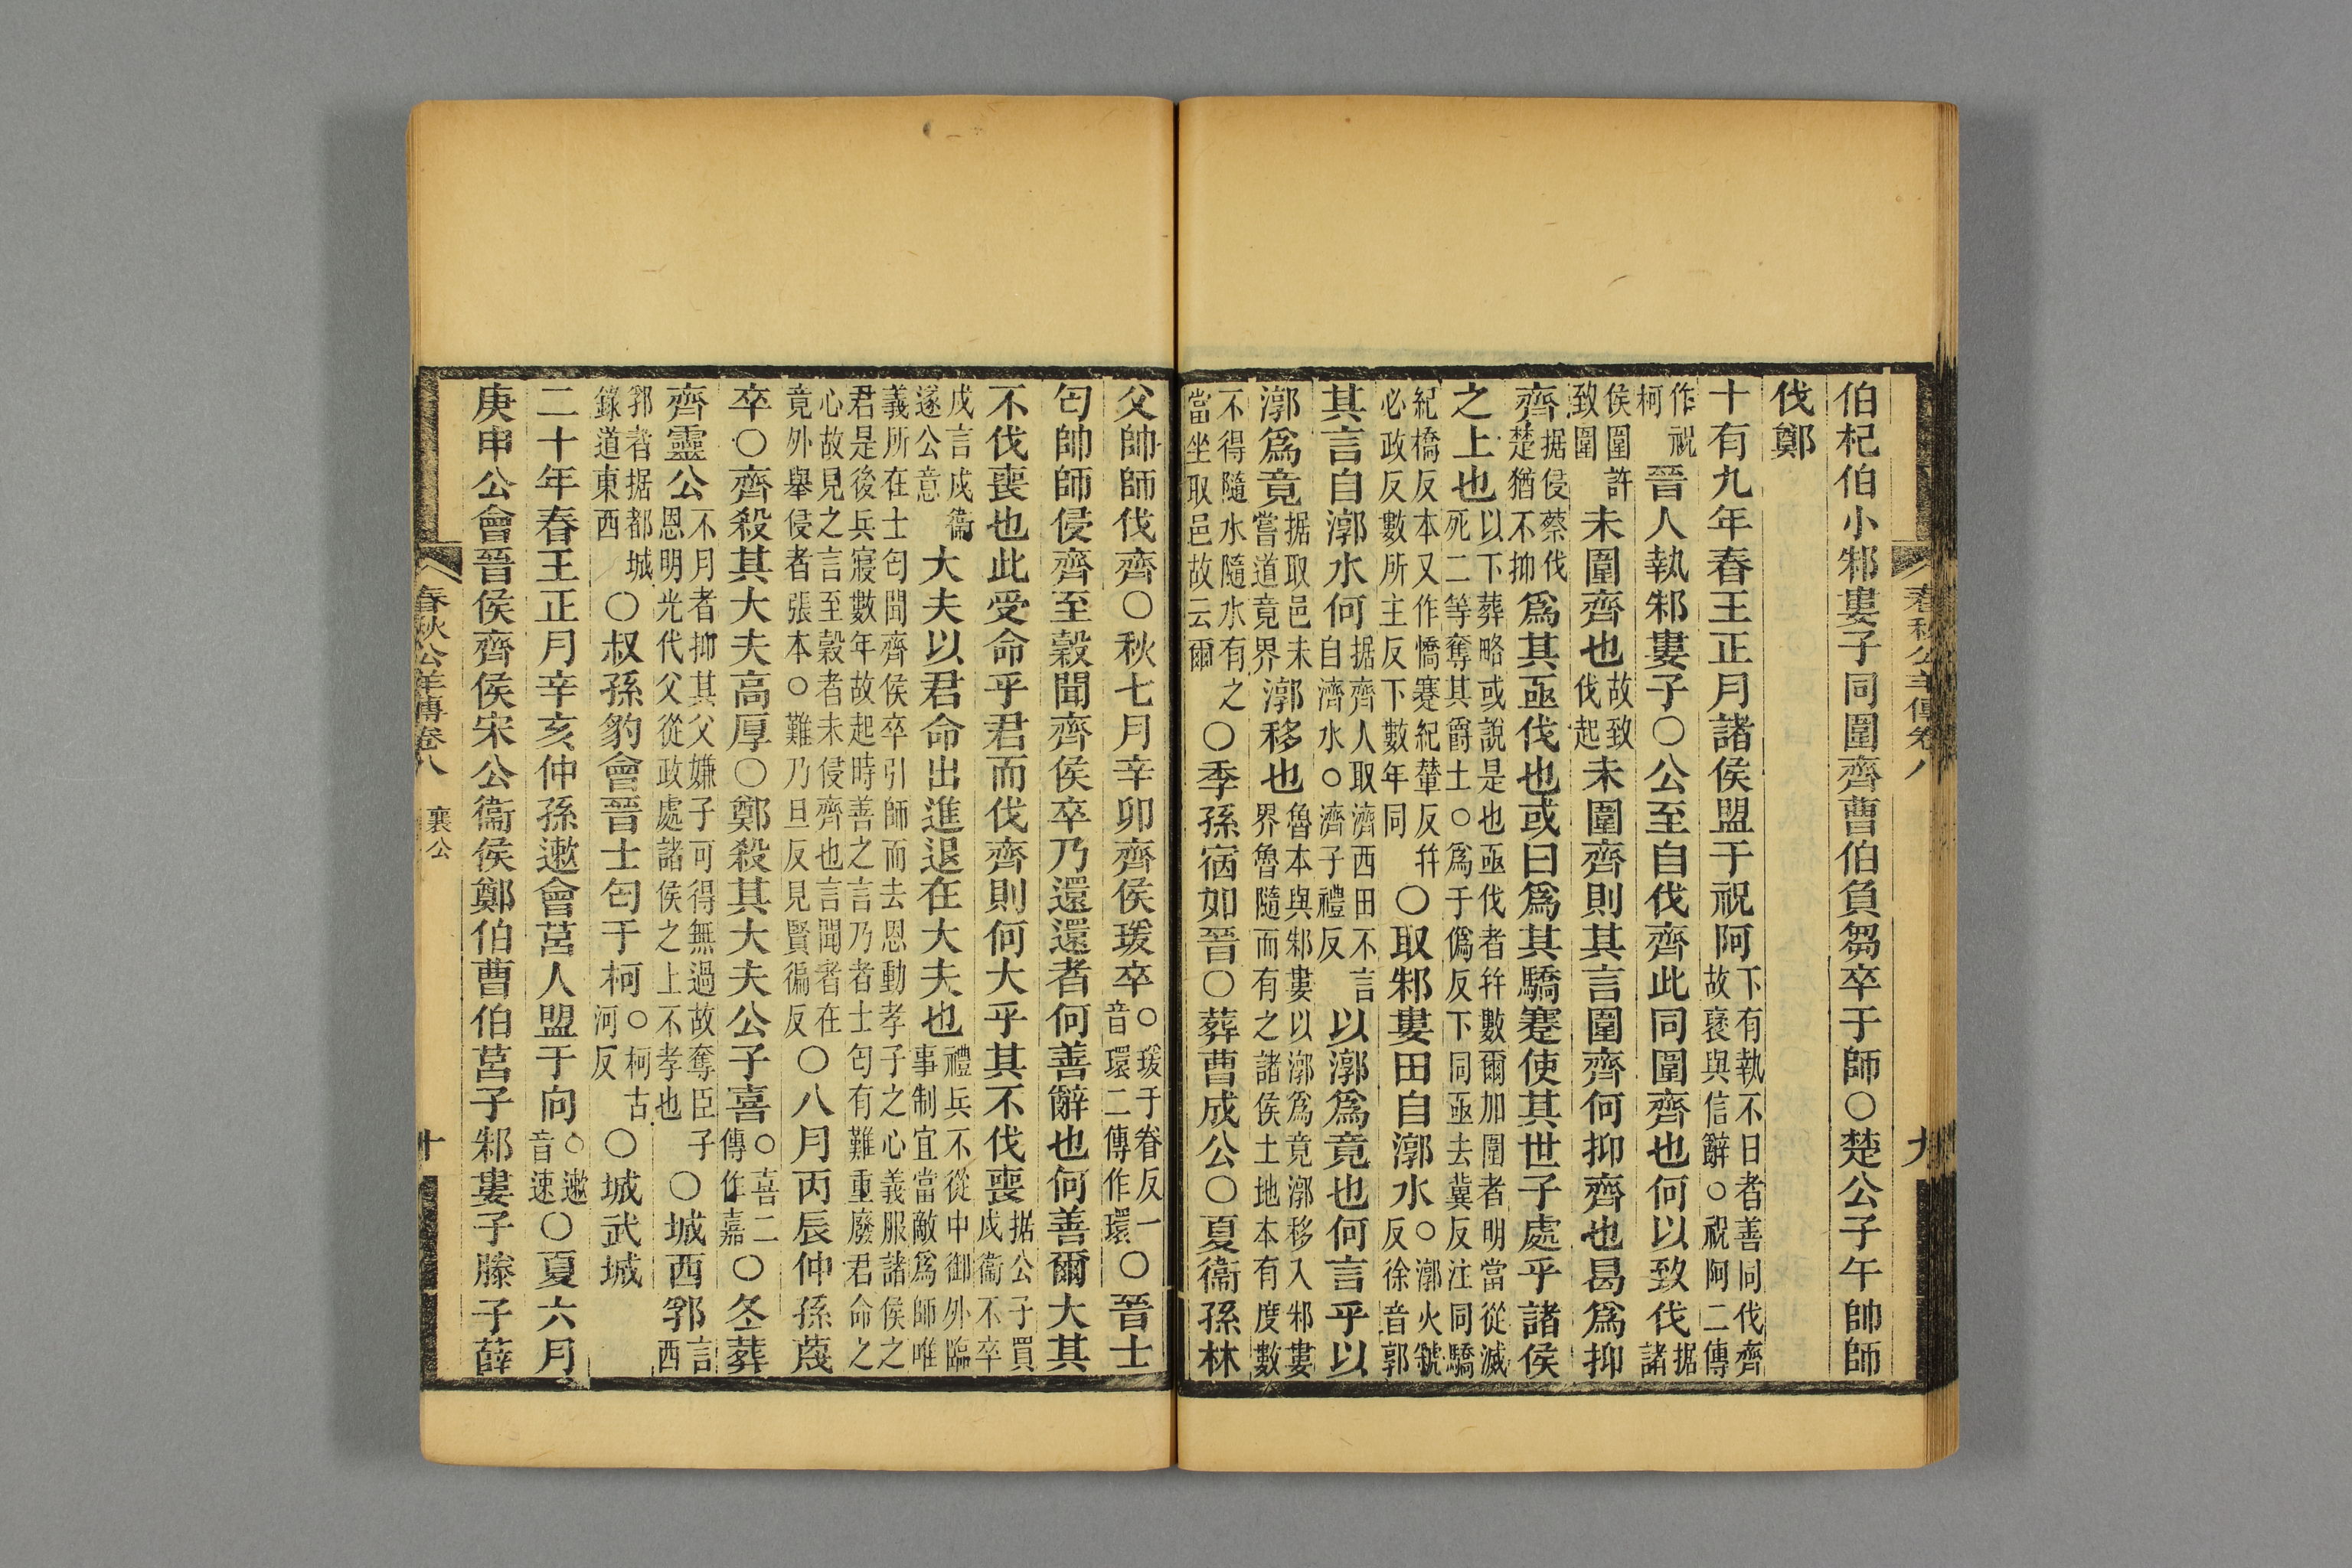 春秋公羊傳卷八
九
伯杞伯小邾婁子同圍齊曹伯負芻卒于師○楚公子午帥師
伐鄭
十有九年春王正月諸侯盟于祝阿下有執不日者善同伐齊故褒與信辭○祝阿二傳
作祝柯晉人執邾婁子○公至自伐齊此同圍齊也何以致伐据諸
侯圍許致圍未圍齊也故致伐起未圍齊則其言圍齊何抑齊也曷爲抑
齊据侵蔡伐楚猶不抑爲其亟伐也或曰爲其驕蹇使其世子處乎諸侯
之上也以下葬略或說是也亟伐者幷數爾加圍者明當從滅死二等奪其爵土○爲于僞反下同亟去冀反注同驕
紀橋反本又作憍蹇紀輦反幷必政反數所主反下數年同○取邾婁田自漷水○漷火虢反徐音郭
其言自漷水何据齊人取濟西田不言自濟水○濟子禮反以漷爲竟也何言乎以
漷爲竟据取邑未嘗道竟界漷移也魯本與邾婁以漷爲竟漷移入邾婁界魯隨而有之諸侯土地本有度數
不得隨水隨水有之當坐取邑故云爾○季孫宿如晉○葬曹成公○夏衞孫林
父帥師伐齊○秋七月辛卯齊侯瑗卒○瑗于眷反一音環二傳作環○晉士
匄帥師侵齊至穀聞齊侯卒乃還還者何善辭也何善爾大其
不伐喪也此受命乎君而伐齊則何大乎其不伐喪据公子買戍衞不卒
戍言戍衞遂公意大夫以君命出進退在大夫也禮兵不從中御外臨事制宜當敵爲師唯
義所在士匄聞齊侯卒引師而去恩動孝子之心義服諸侯之君是後兵寢數年故起時善之言乃者士匄有難重廢君命之
心故見之言至穀者未侵齊也言聞者在竟外舉侵者張本○難乃旦反見賢徧反○八月丙辰仲孫蔑
卒○齊殺其大夫高厚○鄭殺其大夫公子喜○喜二傳作嘉○冬葬
齊靈公不月者抑其父嫌子可得無過故奪臣子恩明光代父從政處諸侯之上不孝也○城西郛言西
郛者据都城錄道東西○叔孫豹會晉士匄于柯○柯古河反○城武城
二十年春王正月辛亥仲孫遬會莒人盟于向○遬音速○夏六月
庚申公會晉侯齊侯宋公衞侯鄭伯曹伯莒子邾婁子滕子薛
春秋公羊傳卷八 襄公
十